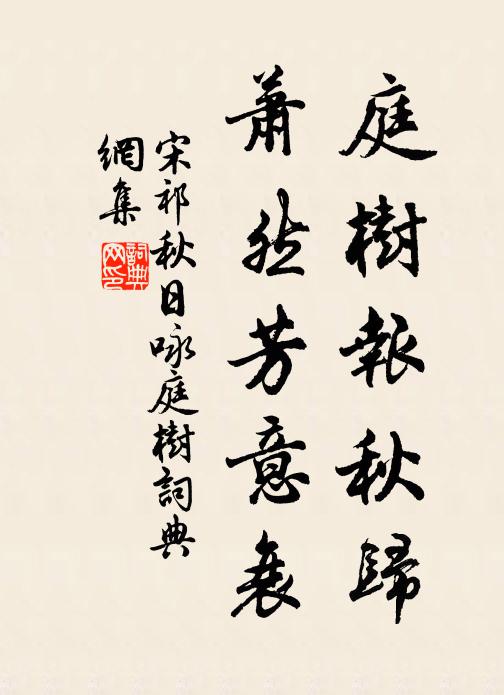 庭樹報秋歸
蕭然芳意衰
宋祁秋日咏庭樹詞典
網集
詞典网印